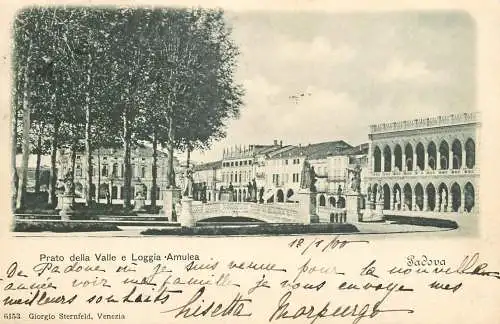 Prato della Valle e Loggia Amulea
Padova
De Padoue où je suis venue pour la nouvelle
année ma famille, je vous envoye mes
meilleurs souhaits
Lisetta Morpurgo
6153 Giorgio Sternfeld, Venezia